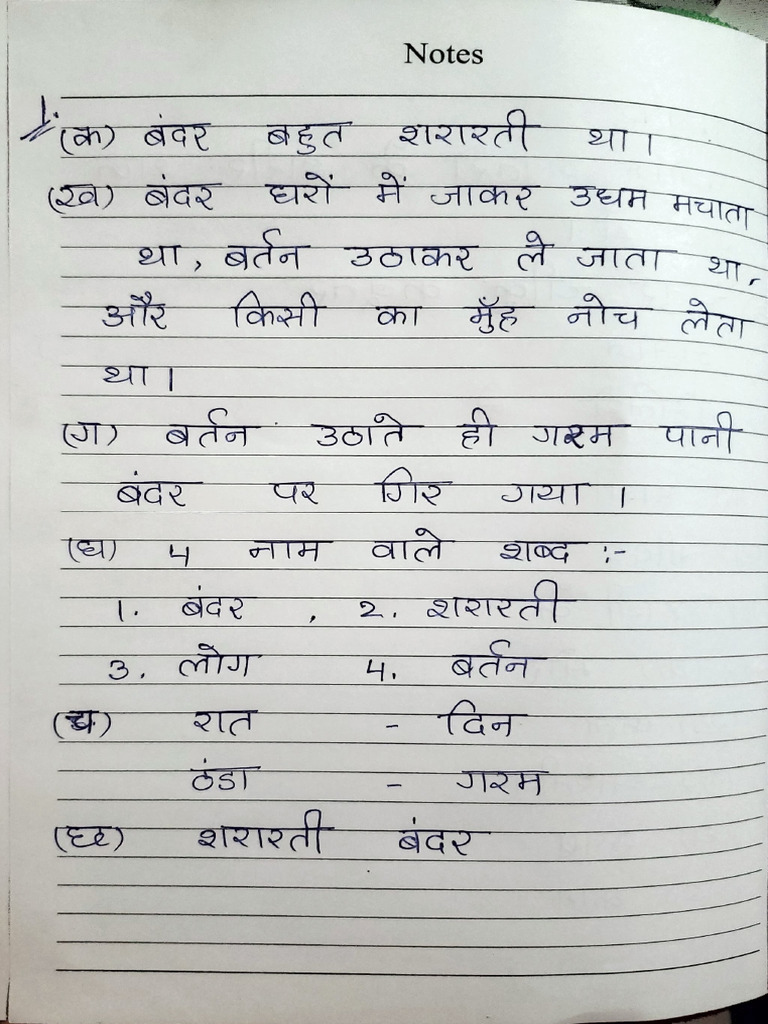 Notes
1.
(क) बंदर बहुत शरारती था।
(ख) बंदर घरों में जाकर उधम मचाता
था, बर्तन उठाकर ले जाता था,
और किसी का मुँह नोच लेता
था।
(ग) बर्तन उठाते ही गरम पानी
बंदर पर गिर गया।
(घ) 4 नाम वाले शब्द :-
1. बंदर , 2. शरारती
3. लोग 4. बर्तन
(च) रात - दिन
ठंडा - गरम
(छ) शरारती बंदर